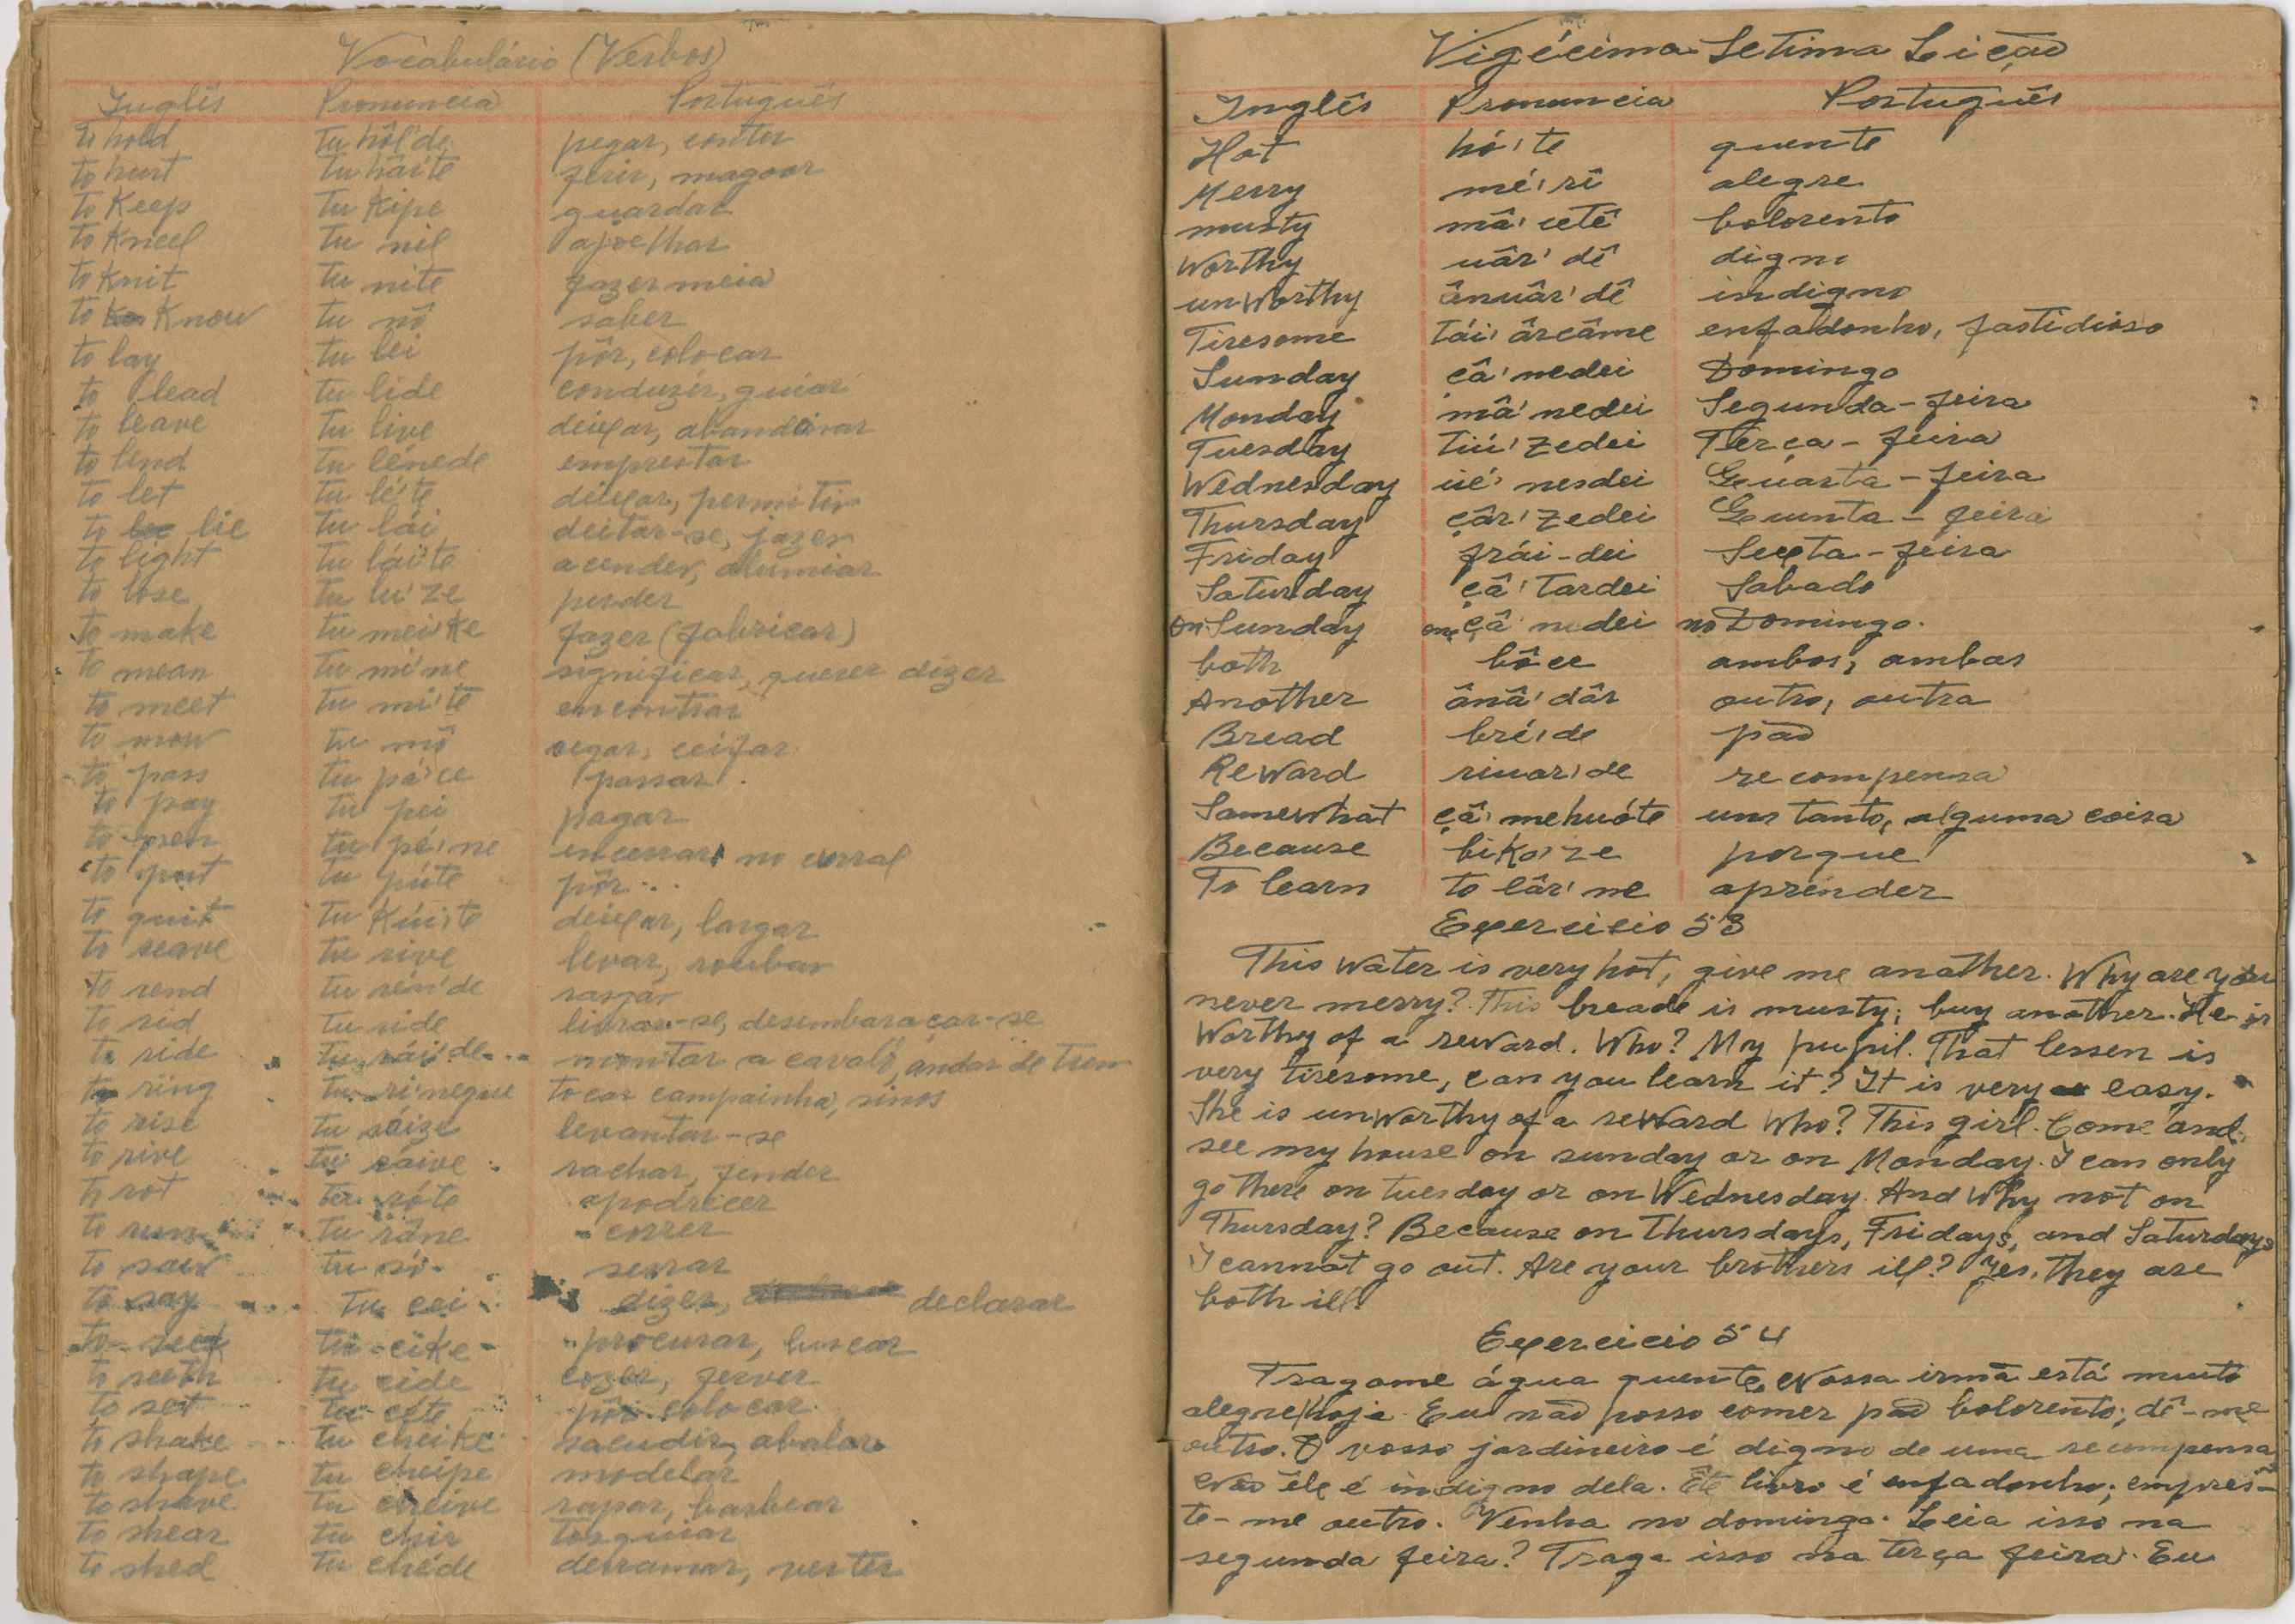 Vocabulário (Verbos)
Inglês Pronuncia Português
to hold tu hôl'de pegar, conter
to hurt tu hâr'te ferir, magoar
to Keep tu Kipe guardar
to Kneel tu nil ajoelhar
to Knit tu nite fazer meia
to Know tu nô saber
to lay tu lei pôr, colocar
to lead tu lide conduzir, guiar
to leave tu live deixar, abandonar
to lend tu lénede emprestar
to let tu lé'te deixar, permitir
to lie tu lái deitar-se, jazer
to light tu lái'te acender, alumiar
to lose tu lu'ze perder
to make tu mei'ke fazer (fabricar)
to mean tu mi'ne significar, querer dizer
to meet tu mi'te encontrar
to mow tu mô segar, ceifar
to pass tu pá'ce passar
to pay tu pei pagar
to pen tu pé'ne encerrar no curral
to put tu púte pôr
to quit tu Kúi'te deixar, largar
to reave tu rive levar, roubar
to rend tu rén'de rasgar
to rid tu ride livrar-se, desembaraçar-se
to ride tu rái'de montar a cavalo, andar de trem
to ring tu ri'negue tocar campainha, sinos
to rise tu ráize levantar-se
to rive tu ráive rachar, fender
to rot tu róte apodrecer
to run tu râne correr
to saw tu só serrar
to say tu cei dizer, declarar
to seek tu cike procurar, buscar
to seeth tu cide cozer, ferver
to set tu cete pôr colocar
to shake tu cheike sacudir, abalar
to shape tu cheipe modelar
to shave tu cheive rapar, barbear
to shear tu chir tosquiar
to shed tu chéde derramar, verter
Vigécima Setima Lição
Inglês Pronuncia Português
Hot hó'te quente
Merry mé'rî alegre
musty mâ'cetê bolorento
Worthy uâr'dê digno
unWorthy ânuâr'dê indigno
Tiresome tái'ârcâme enfadonho, fastidioso
Sunday çâ'nedei Domingo
Monday mâ'nedei Segunda-feira
Tuesday tiú'zedei Terça-feira
Wednesday ué'nesdei Quarta-feira
Thursday çâr'zedei Quinta-feira
Friday frái-dei Sexta-feira
Saturday çâ'tardei Sabado
on Sunday one çâ'nedei no Domingo.
both bôce ambos, ambas
Another ânâ'dâr outro, outra
Bread bré'de pão
ReWard riuar'de recompensa
SomeWhat çâ'mehuóte uns tanto, alguma coisa
Because biko'ze porque
To learn to lâr'ne aprender
Exercicio 53
This water is very hot, give me another. Why are you
never merry? This breade is musty; buy another. He is
Worthy of a reward. Who? My pupil. That lessen is
very tiresome, can you learn it? It is very easy.
She is unworthy of a reward Who? This girl. Come and
see my house on sunday or on Monday. I can only
go there on tuesday or on Wednesday. And Why not on
Thursday? Because on thursdays, Fridays, and Saturdays
I cannot go out. Are your brothers ill? Yes, they are
both ill.
Exercicio 54
Tragame água quente. Nossa irmã está muito
alegre hoje. Eu não posso comer pão bolorento; dê-me
outro. O vosso jardineiro é digno de uma recompensa
Não êle é indigno dela. Ête livro é enfadonho; empres-
te-me outro. Venha no domingo. Leia isso na
segunda feira? Traga isso na terça feira. Eu